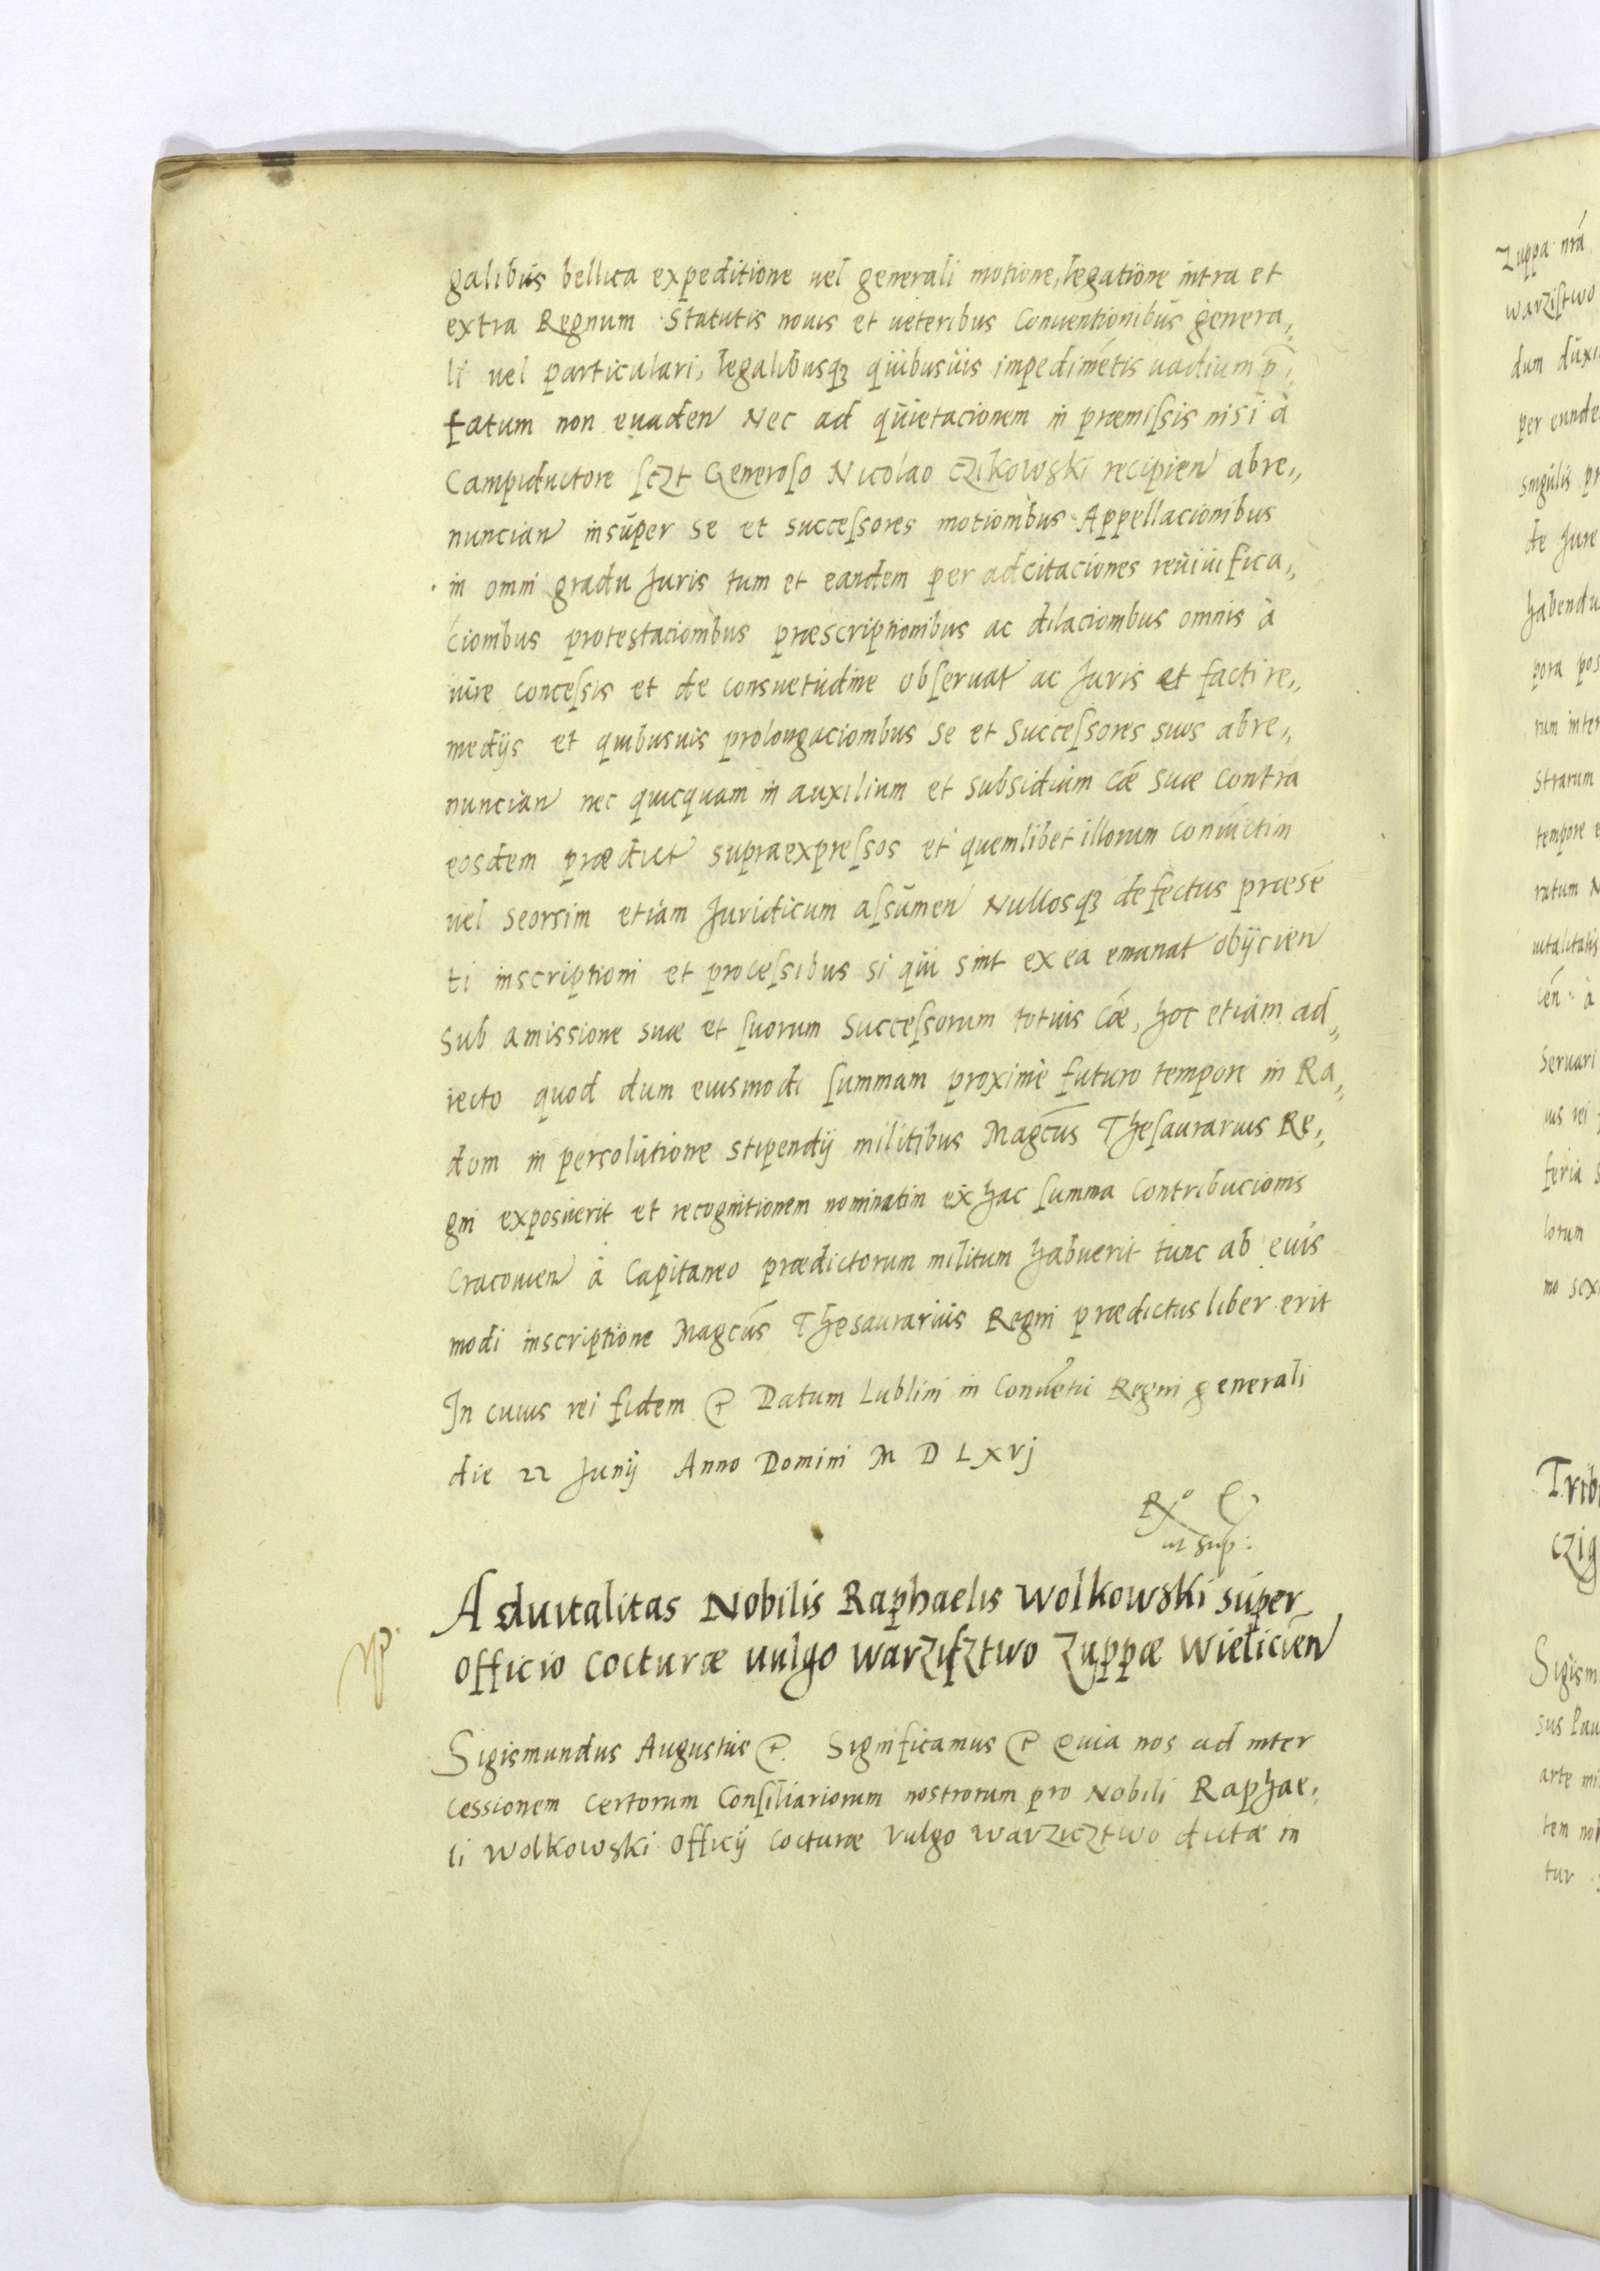 galibus bellica expeditione uel generali motione, legatione intra et
extra Regnum Statutis nouis et ueteribus Conuentionibus genera,,
li uel particulari, legalibusq3 quibusuis impedimētis uadium p̄,,
fatum non euaden Nec ad quietacionem in præmissis nisi à
Campiductore sczt Generoso Nicolao Czikowski recipien abre,,
nuncian insuper se et successores motionibus Appellacionibus
in omni gradu Juris tum et eandem per adcitaciones reuiuifica,,
cionibus protestacionibus præscriptionibus ac dilacionibus omnis à
iure concessis et de consuetudine obseruat ac Juris et facti re,,
medijs et quibusuis prolongacionibus se et Successores suos abre,,
nuncian nec quicquam in auxilium et subsidium cāe suæ contra
eosdem prædict supraexpressos et quemlibet illorum coniūctim
uel seorsim etiam Juridicum assumen Nullosq3 defectus præsē
ti inscriptioni et processibus si qui sint ex ea emanat obijcien
Sub amissione suæ et suorum Successorum totius cāe, hoc etiam ad,,
iecto quod dum eiusmodi summam proximè futuro tempore in Ra,,
dom in persolutione stipendij militibus Magcūs Thesaurarius Re,,
gni exposuerit et recognitionem nominatim ex hac summa Contribucionis
Cracouien à Capitaneo prædictorum militum habuerit tunc ab eius
modi inscriptione Magcūs Thesaurarius Regni prædictus liber erit
In cuius rei fidem &c Datum Lublini in Conuētu Regni generali
die 22 Junij Anno Domini M D L x vj
ut sup:
Aduitalitas Nobilis Raphaelis Wolkowski super
officio cocturæ uulgo warzisztwo Zuppæ Wielicien
Sigismundus Augustus &c. Significamus &c Quia nos ad inter
cessionem certorum Consiliariorum nostrorum pro Nobili Raphae,,
li Wolkowski officij cocturæ vulgo warzicztwo dictæ in
Zuppa nrā
warzistwo
dum duxi
per eunde
singulis pr
de Jure
habendu
pora pos
rum inter
strarum
tempore e
ratum N
uitalitatis
cēn à
Seruari
ius rei
feria s
lorum
mo sex
Trib
czig
Sigism
sus Pau
arte mi
tem no
tur